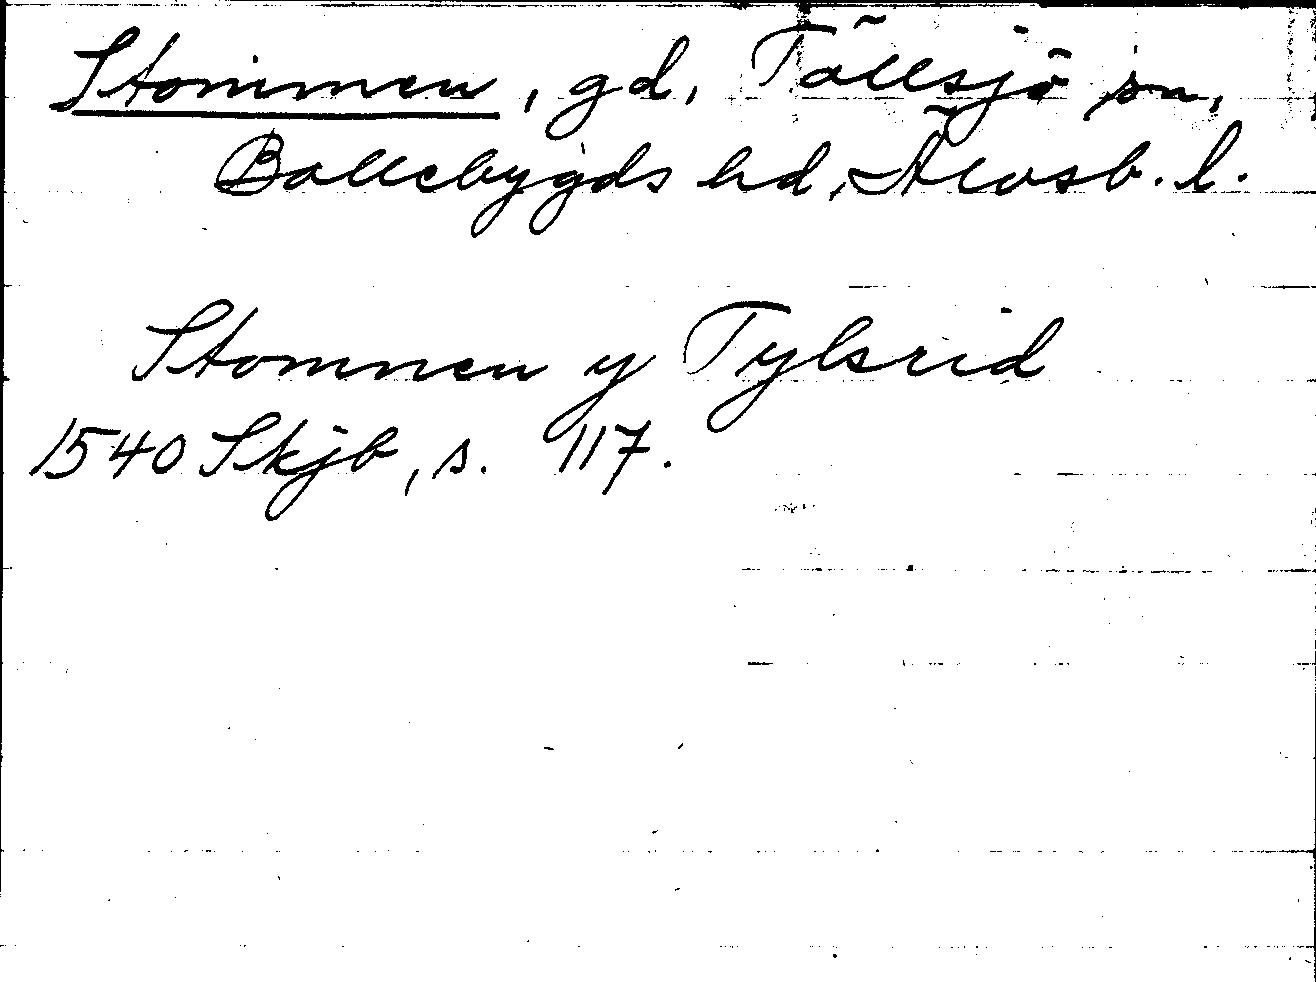 Stommen, gd, Töllsjö sn,
Bollebygds hd, Älvsb. l.
Stomnen y Tylsrid
1540 Skjb, s. 117.